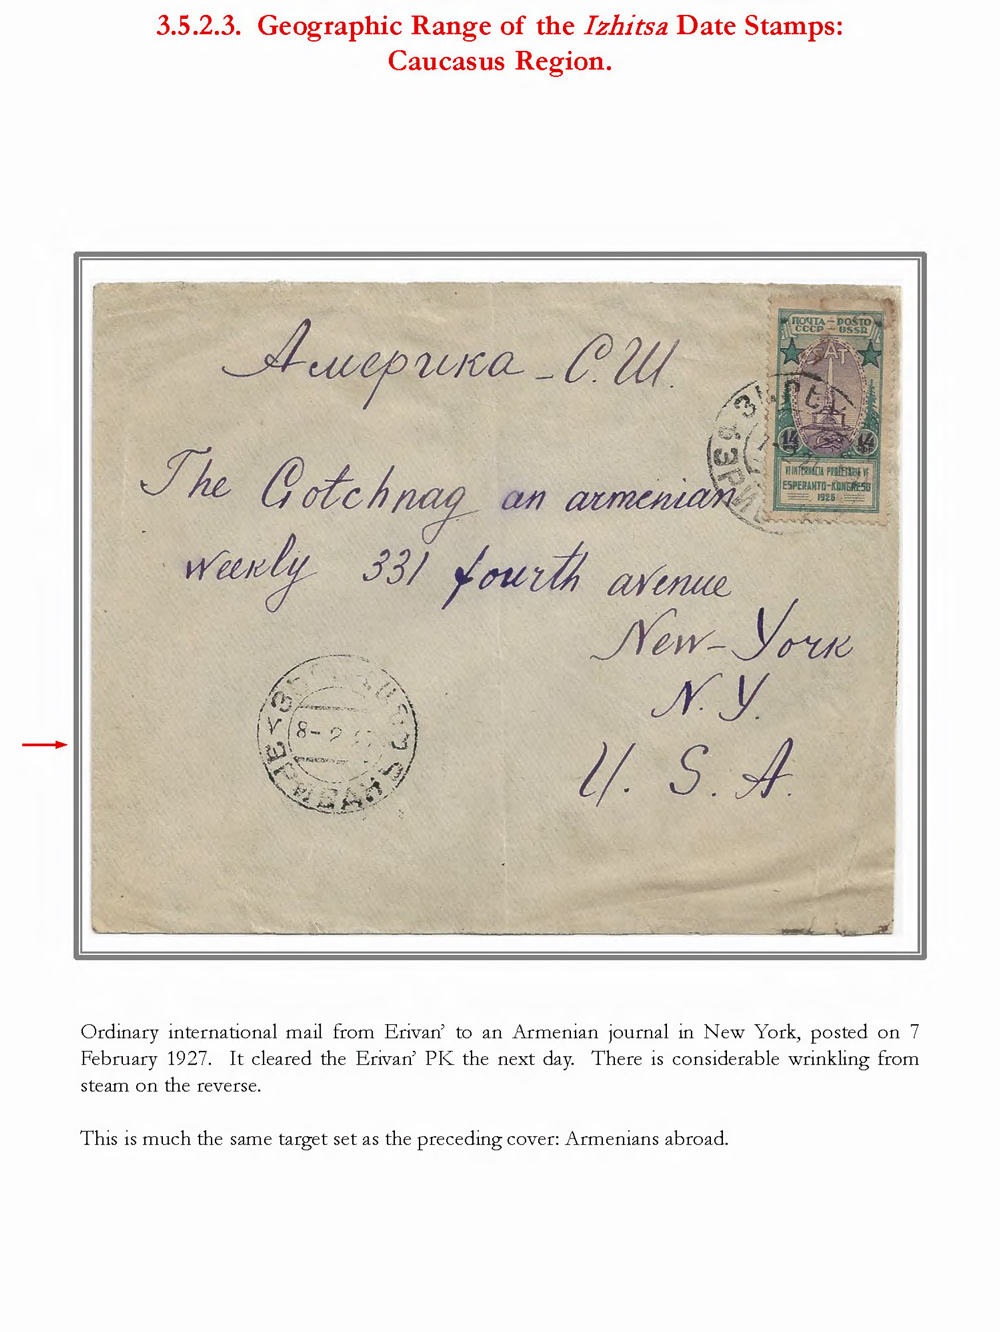 3.5.2.3. Geographic Range of the Izhitsa Date Stamps:
Caucasus Region.
Америка - С.Ш.
ПОЧТА - POŜTO
СССР USSR
SAT
14 14
VI INTERNACIA PROLETARIA VI
ESPERANTO-KONGRESO
1926
The Gotchnag an armenian
weekly 331 fourth avenue
New-York
N.Y.
U.S.A.
8-2
ЭРИВАНЬ
Ordinary international mail from Erivan’ to an Armenian journal in New York, posted on 7
February 1927. It cleared the Erivan’ PK the next day. There is considerable wrinkling from
steam on the reverse.
This is much the same target set as the preceding cover: Armenians abroad.